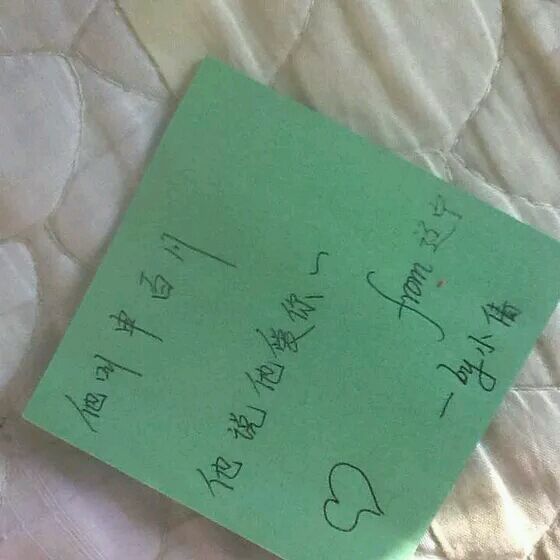 他叫申百川
他说他爱你~
from 辽宁
— by 小倩